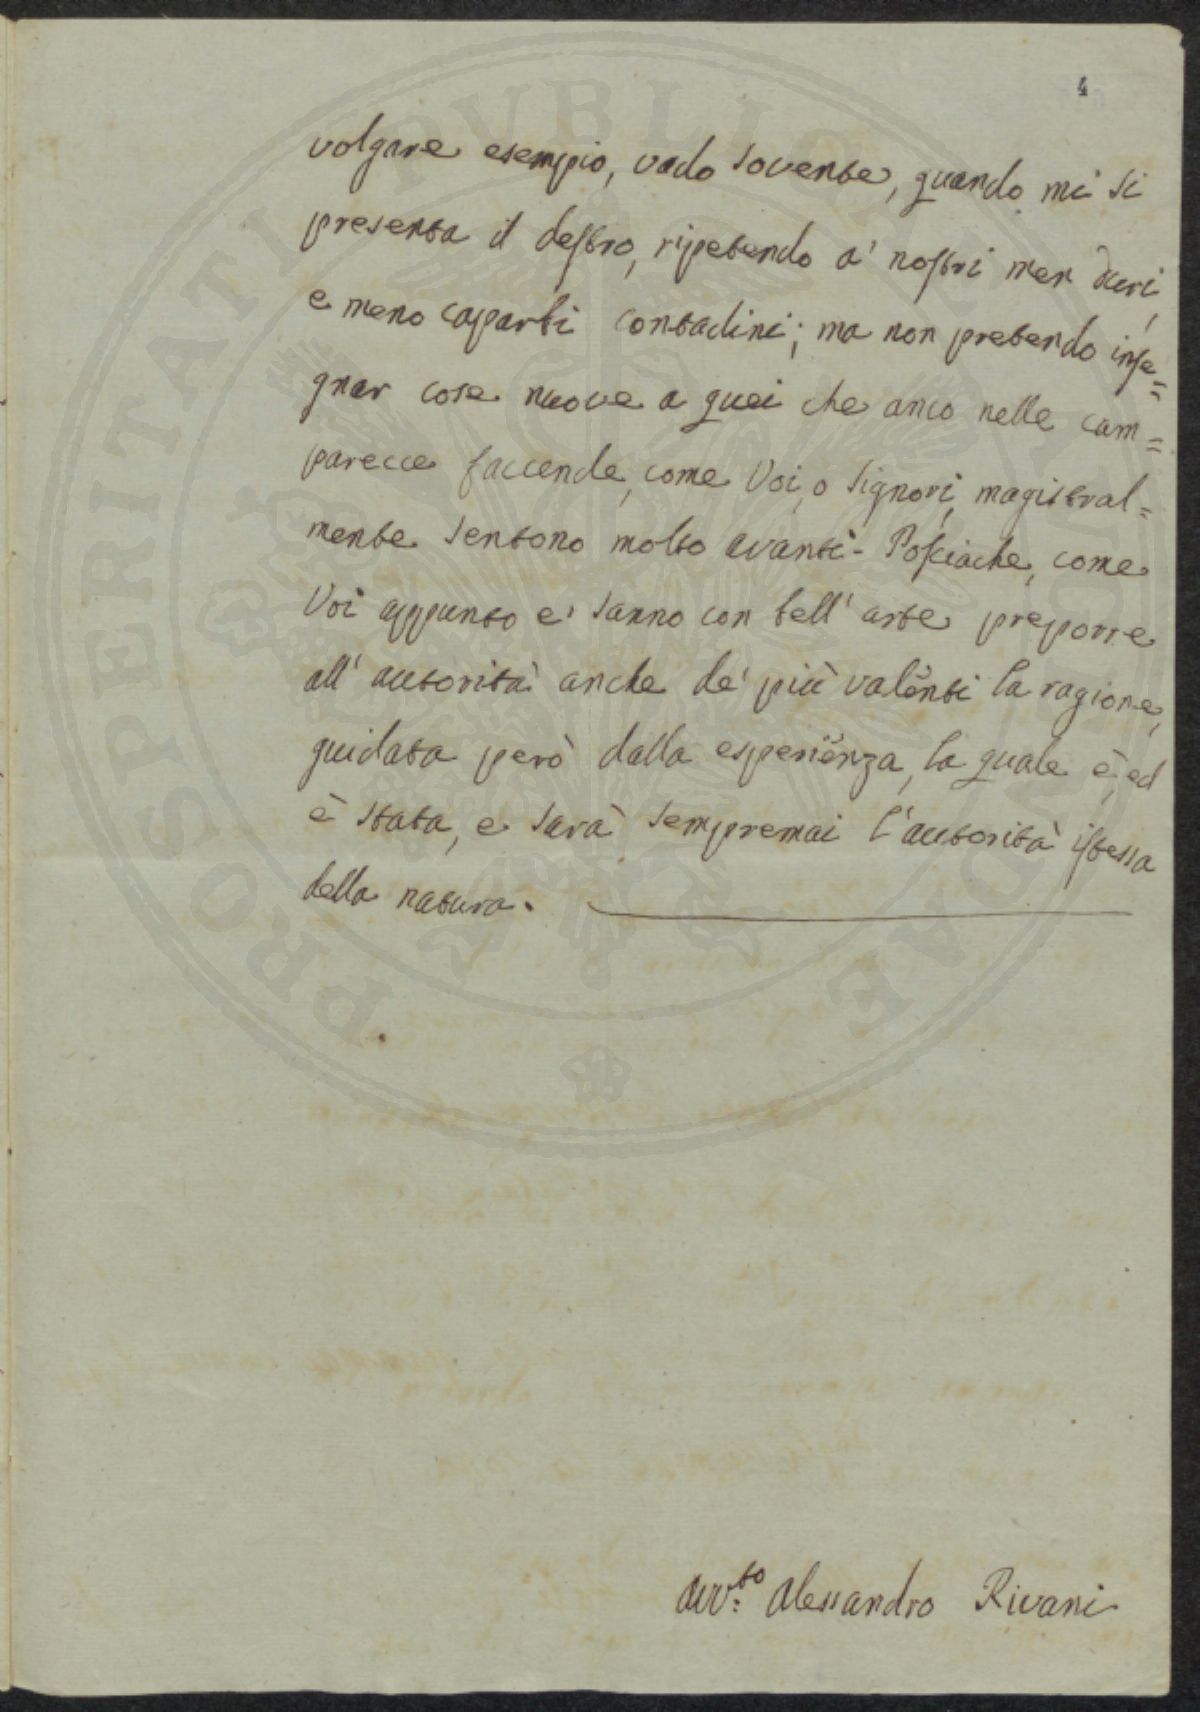 4
volgare esempio, vado sovente, quando mi si
presenta il destro, ripetendo a' nostri men duri,
e meno caparbi contadini; ma non pretendo inse=
gnar cose nuove a quei che anco nelle cam=
parecce faccende, come Voi, o Signori, magistral=
mente sentono molto avanti - Posciache, come
Voi appunto e' sanno con bell' arte preporre
all' autorità anche de' più valenti la ragione,
guidata però dalla esperienza, la quale è, ed
è stata, e sarà sempremai l'autorità istessa
della natura.
Avv.to Alessandro Rivani
PROSPERITATI PUBLICAE